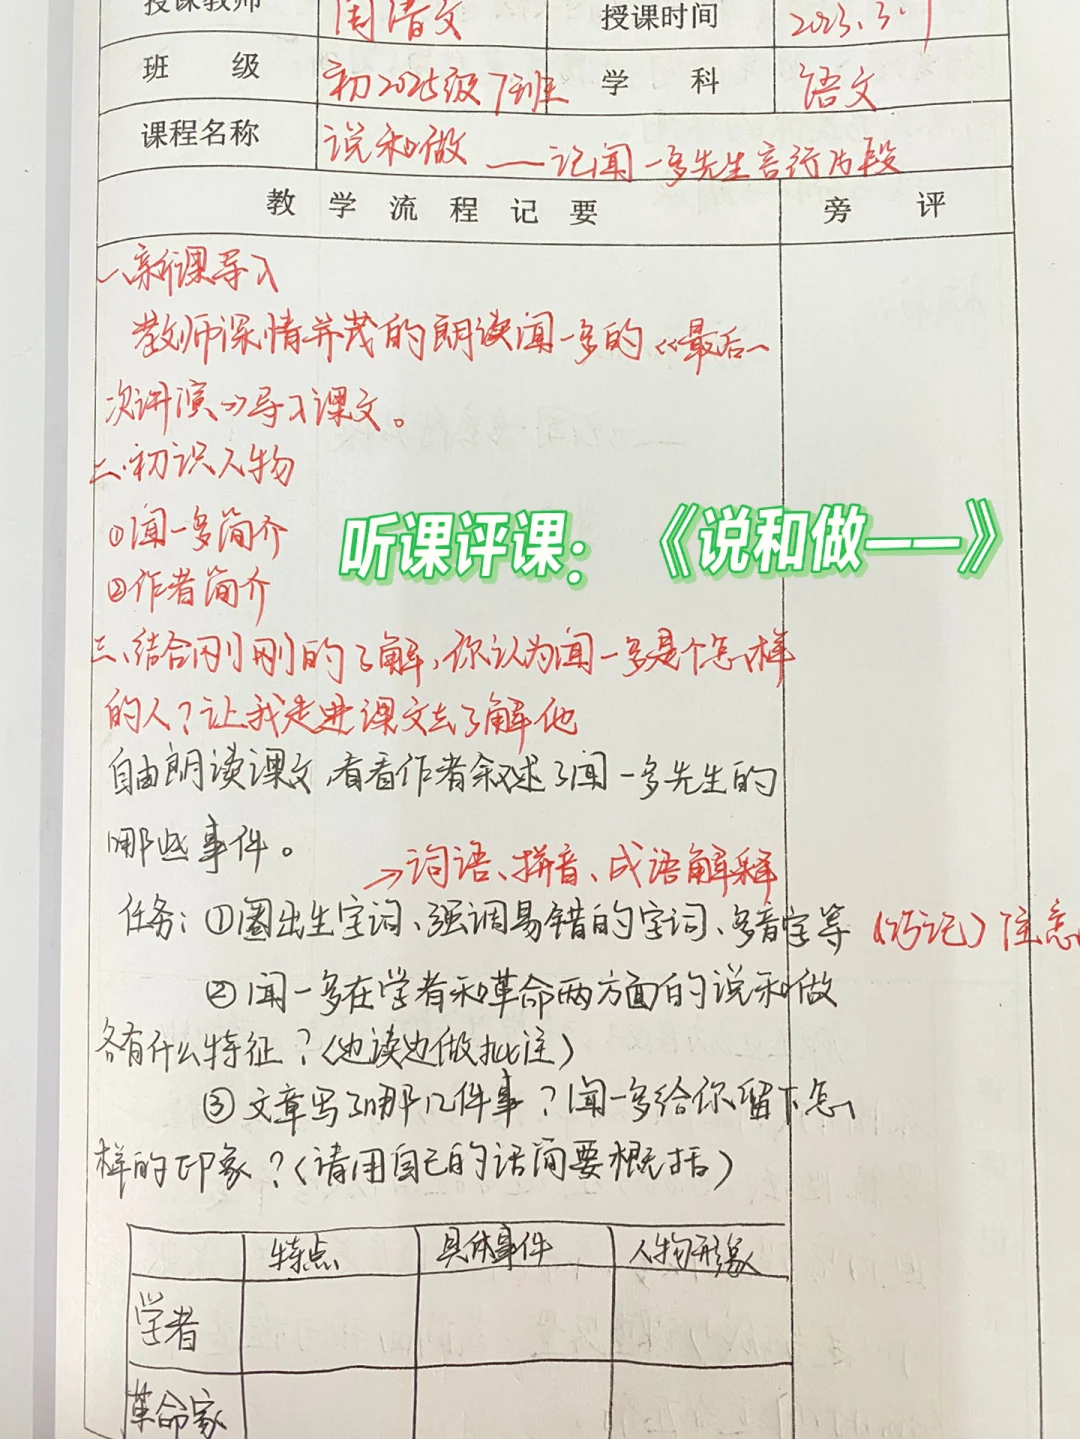 授课教师 周清文 授课时间 2023.3.1
班 级 初2025级7班 学 科 语文
课程名称 说和做——记闻一多先生言行片段
教 学 流 程 记 要 旁 评
一、新课导入
教师深情并茂的朗读闻一多的《最后一
次讲演》导入课文。
二、初识人物
①闻一多简介
②作者简介
听课评课：《说和做——》
三、结合刚刚的了解,你认为闻一多是个怎样
的人?让我走进课文去了解他
自由朗读课文,看看作者叙述了闻一多先生的
哪些事件。
→词语、拼音、成语解释
任务:①圈出生字词、强调易错的字词、多音字等(巧记)注意
②闻一多在学者和革命两方面的说和做
各有什么特征?(边读边做批注)
③文章写了哪几件事?闻一多给你留下怎
样的印象?(请用自己的话简要概括)
特点 具体事件 人物形象
学者
革命家